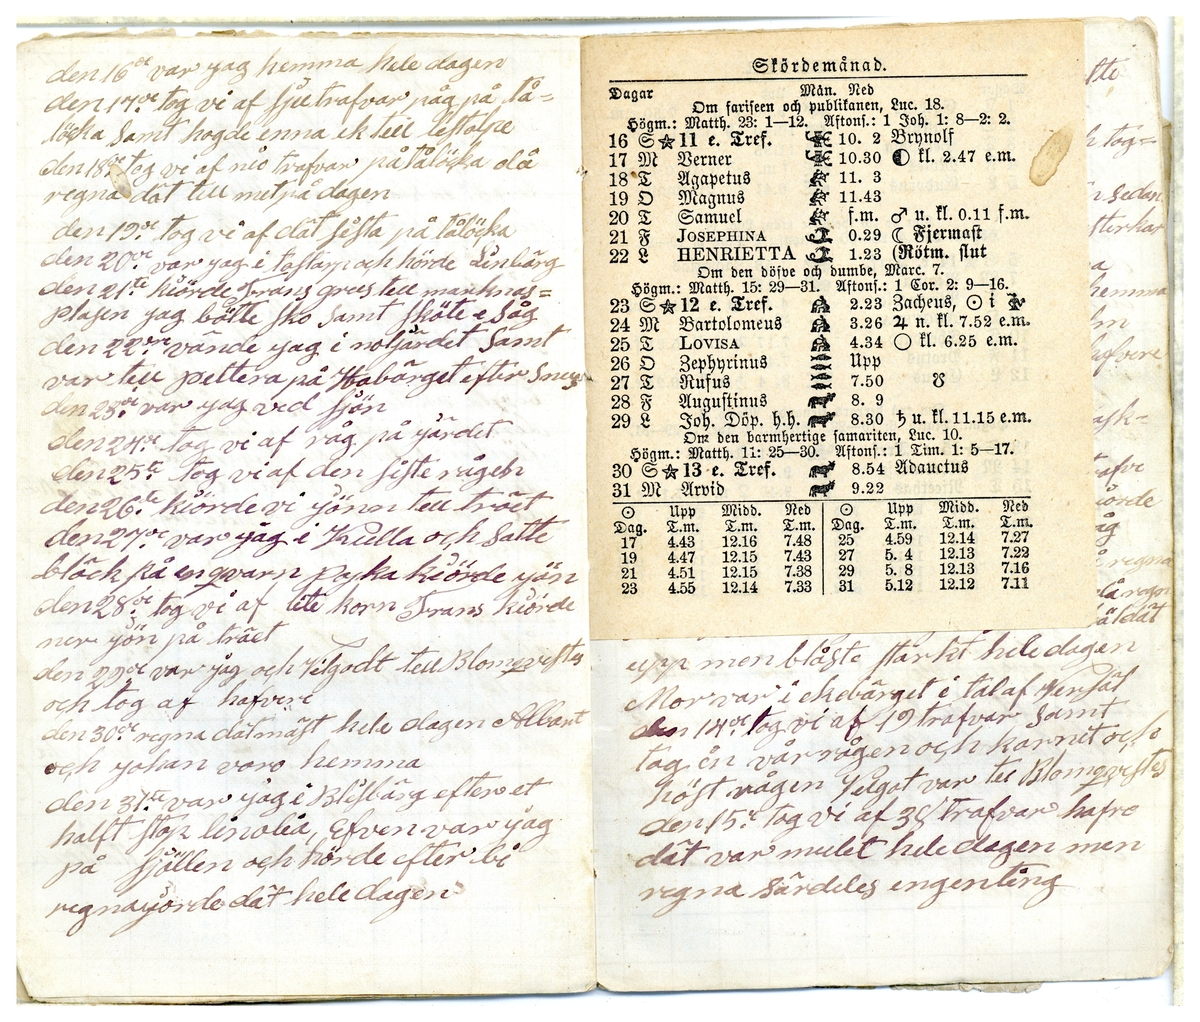 den 16de var jag hemma hele dagen
den 17de tog vi af sju trafvar påg på tå=
löcka samt hogde enna ek teil
den 18de tog vi af nio trafvar på tålöcka olå
regna dåt teil met på dagen
den 19de tog vi af dåt sista på tålöcka
den 20de var jag i Tostarp och hörde Linbärg
den 21te kiörde Frans grees teil marknas=
plasen jag bötte sko samt sköte e såg
den 22dre vånde jag i notjärdet samt
var teil pettera på Habärget efter
den 23de var jag ved sjön
den 24de tog vi af råg på järdet
den 25te tog vi af den siste rågeh
den 26te kiörde vi jönn teil trået
den 27de var jag i Kulla och Satte
bläck på engvarn pojka kiörde jön
den 28de tog vi af lite korn Frans kiörde
ner jön på trået
den 29de var jag och Velgodt teil Blomqvistes
och tog af hafvere
den 30de regna dåt måst hele dagen Albart
och johan varo hemma
den 31te var jag i Blisbärg efter et
halft stop linolia, Efven var jag
på sjöllen och hörde efter bi
regna jorde dåt hele dagen
Skördemånad.
Dagar Mån. Ned
Om fariseen och publikanen, Luc. 18.
Högm.: Matth. 23: 1—12. Aftons.: 1 Joh. 1: 8—2: 2.
16 S ★ 11 e. Tref. 10. 2 Brynolf
17 M Verner 10.30 ◐ kl. 2.47 e.m.
18 T Agapetus 11. 3
19 O Magnus 11.43
20 T Samuel f.m. ♂ u. kl. 0.11 f.m.
21 F JOSEPHINA 0.29 ☾ Fjermast
22 L HENRIETTA 1.23 (Rötm. slut
Om den döfve och dumbe, Marc. 7.
Högm.: Matth. 15: 29—31. Aftons.: 1 Cor. 2: 9—16.
23 S ★ 12 e. Tref. 2.23 Zacheus, ☉ i
24 M Bartolomeus 3.26 ♃ n. kl. 7.52 e.m.
25 T LOVISA 4.34 ○ kl. 6.25 e.m.
26 O Zephyrinus Upp
27 T Rufus 7.50 ☋
28 F Augustinus 8. 9
29 L Joh. Döp. h.h. 8.30 ♄ u. kl. 11.15 e.m.
Om den barmhertige samariten, Luc. 10.
Högm.: Matth. 11: 25—30. Aftons.: 1 Tim. 1: 5—17.
30 S ★ 13 e. Tref. 8.54 Adauctus
31 M Arvid 9.22
☉ Upp Midd. Ned ☉ Upp Midd. Ned
Dag. T.m. T.m. T.m. Dag. T.m. T.m. T.m.
17 4.43 12.16 7.48 25 4.59 12.14 7.27
19 4.47 12.15 7.43 27 5. 4 12.13 7.22
21 4.51 12.15 7.38 29 5. 8 12.13 7.16
23 4.55 12.14 7.33 31 5.12 12.12 7.11
upp men blåste stärkt hele dagen
Mor var i ekebärget i tal af
den 14de tog vi af 19 trafvar samt
tog ön vårrågen och kornit och
höst rågen Velgot var teil Blomqvistes
den 15de tog vi af 38 trafvar hafre
dåt var mulet hele dagen men
regna särdeles engenting